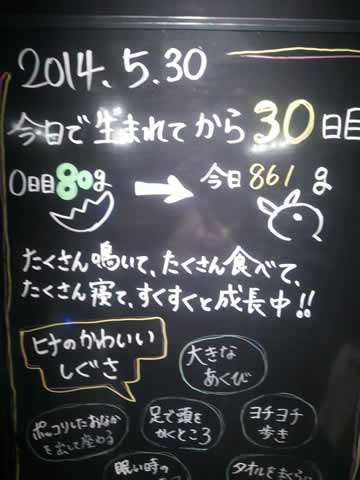 2014.5.30
今日で生まれてから30日目
0日目 80g → 今日 861g
たくさん鳴いて、たくさん食べて、
たくさん寝て、すくすくと成長中!!
ヒナのかわいい
しぐさ
大きな
あくび
ポッコリしたおなか
を出して座る
足で頭を
かくところ
ヨチヨチ
歩き
眠い時の
タオルをまくらに